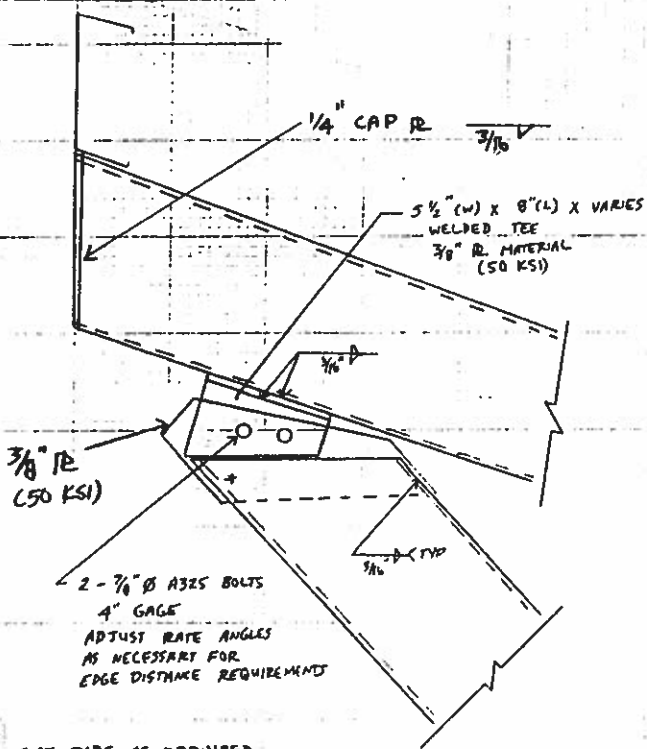 1/4" CAP PL
3/16
5 1/2" (W) X 8" (L) X VARIES
WELDED TEE
3/8" PL MATERIAL
(50 KSI)
3/16"
3/8" PL
(50 KSI)
3/16" TYP
2 - 7/8" Ø A325 BOLTS
4" GAGE
ADJUST PLATE ANGLES
AS NECESSARY FOR
EDGE DISTANCE REQUIREMENTS